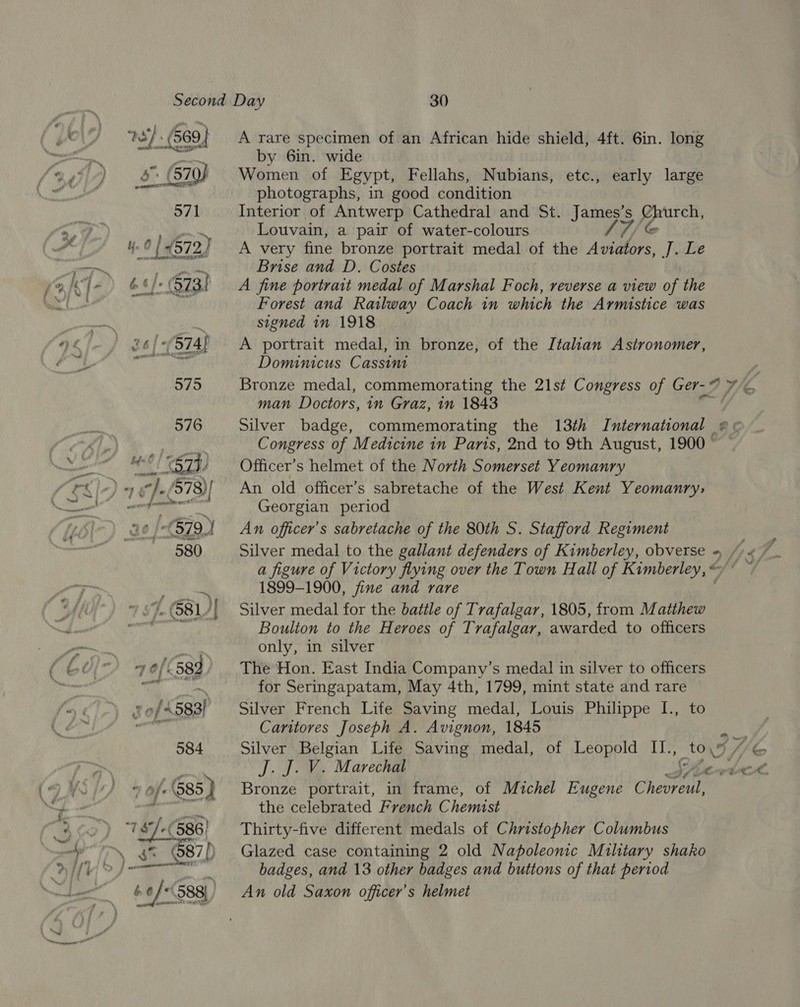 Second Day 30
569 A rare specimen of an African hide shield, 4ft. 6in. long
by 6in. wide
570 Women of Egypt, Fellahs, Nubians, etc., early large
photographs, in good condition
571 Interior of Antwerp Cathedral and St. James's Church,
Louvain, a pair of water-colours 17/6
572 A very fine bronze portrait medal of the Aviators, J. Le
Brise and D. Costes
573 A fine portrait medal of Marshal Foch, reverse a view of the
Forest and Railway Coach in which the Armistice was
signed in 1918
574 A portrait medal, in bronze, of the Italian Astronomer,
Dominicus Cassini
575 Bronze medal, commemorating the 21st Congress of Ger-
man Doctors, in Graz, in 1843
576 Silver badge, commemorating the 13th International
Congress of Medicine in Paris, 2nd to 9th August, 1900
577 Officer's helmet of the North Somerset Yeomanry
578 An old officer's sabretache of the West Kent Yeomanry,
Georgian period
579 An officer's sabretache of the 80th S. Stafford Regiment
580 Silver medal to the gallant defenders of Kimberley, obverse
a figure of Victory flying over the Town Hall of Kimberley,
1899-1900, fine and rare
581 Silver medal for the battle of Trafalgar, 1805, from Matthew
Boulton to the Heroes of Trafalgar, awarded to officers
only, in silver
582 The Hon. East India Company's medal in silver to officers
for Seringapatam, May 4th, 1799, mint state and rare
583 Silver French Life Saving medal, Louis Philippe I., to
Caritores Joseph A. Avignon, 1845
584 Silver Belgian Life Saving medal, of Leopold II., to
J. J. V. Marechal
585 Bronze portrait, in frame, of Michel Eugene Chevreul,
the celebrated French Chemist
586 Thirty-five different medals of Christopher Columbus
587 Glazed case containing 2 old Napoleonic Military shako
badges, and 13 other badges and buttons of that period
588 An old Saxon officer's helmet